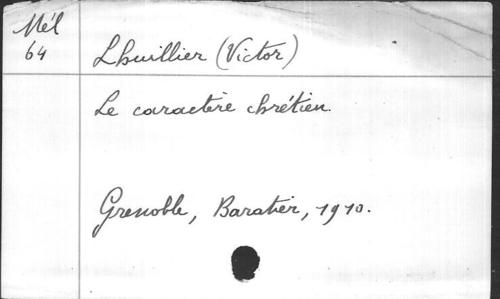 Mél
64
Lhuillier (Victor)
Le caractère chrétien
Grenoble, Baratier, 1910.